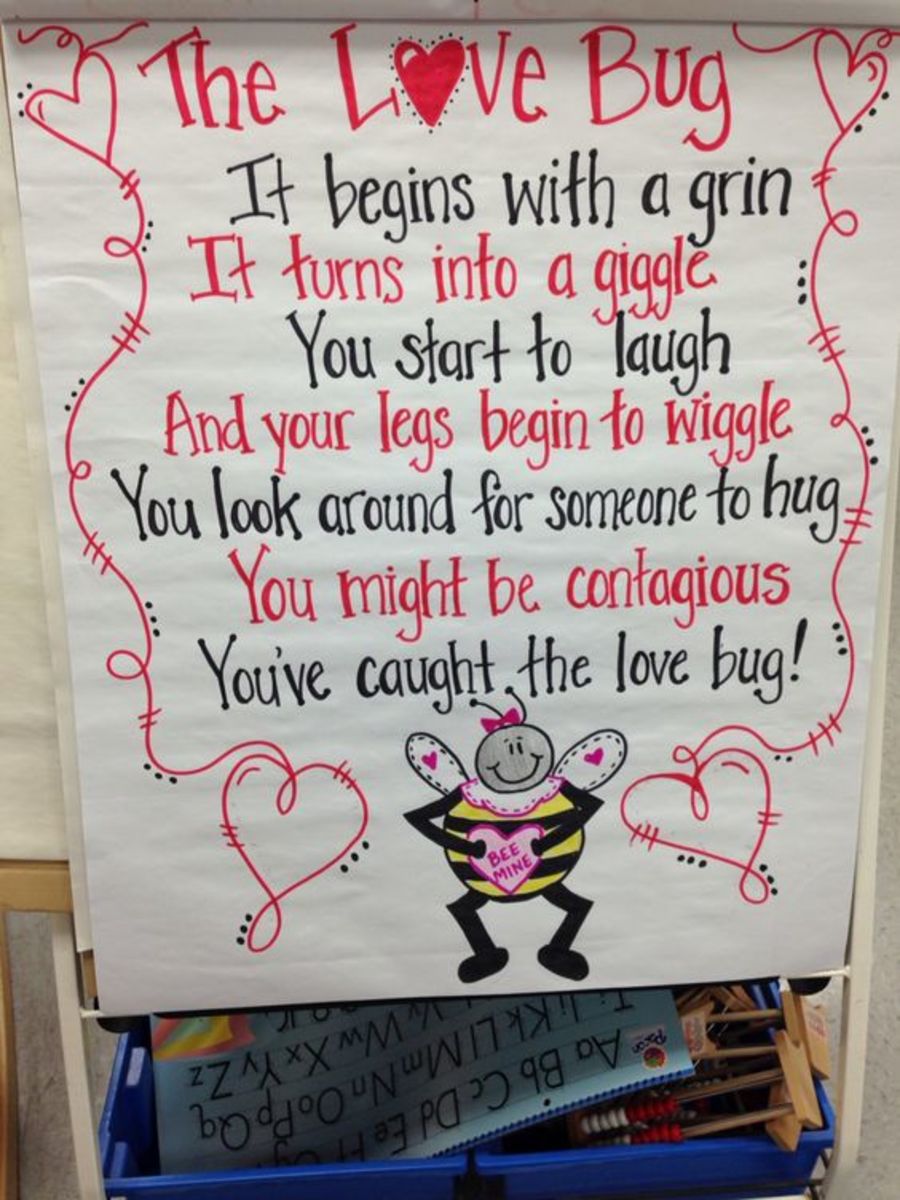 The Love Bug
It begins with a grin
It turns into a giggle
You start to laugh
And your legs begin to wiggle
You look around for someone to hug
You might be contagious
You've caught the love bug!
BEE
MINE
Aa Bb Cc Dd Ee Ff Gg
Kk Ll Mm Nn Oo Pp Qq
Vv Ww Xx Yy Zz
Pacon